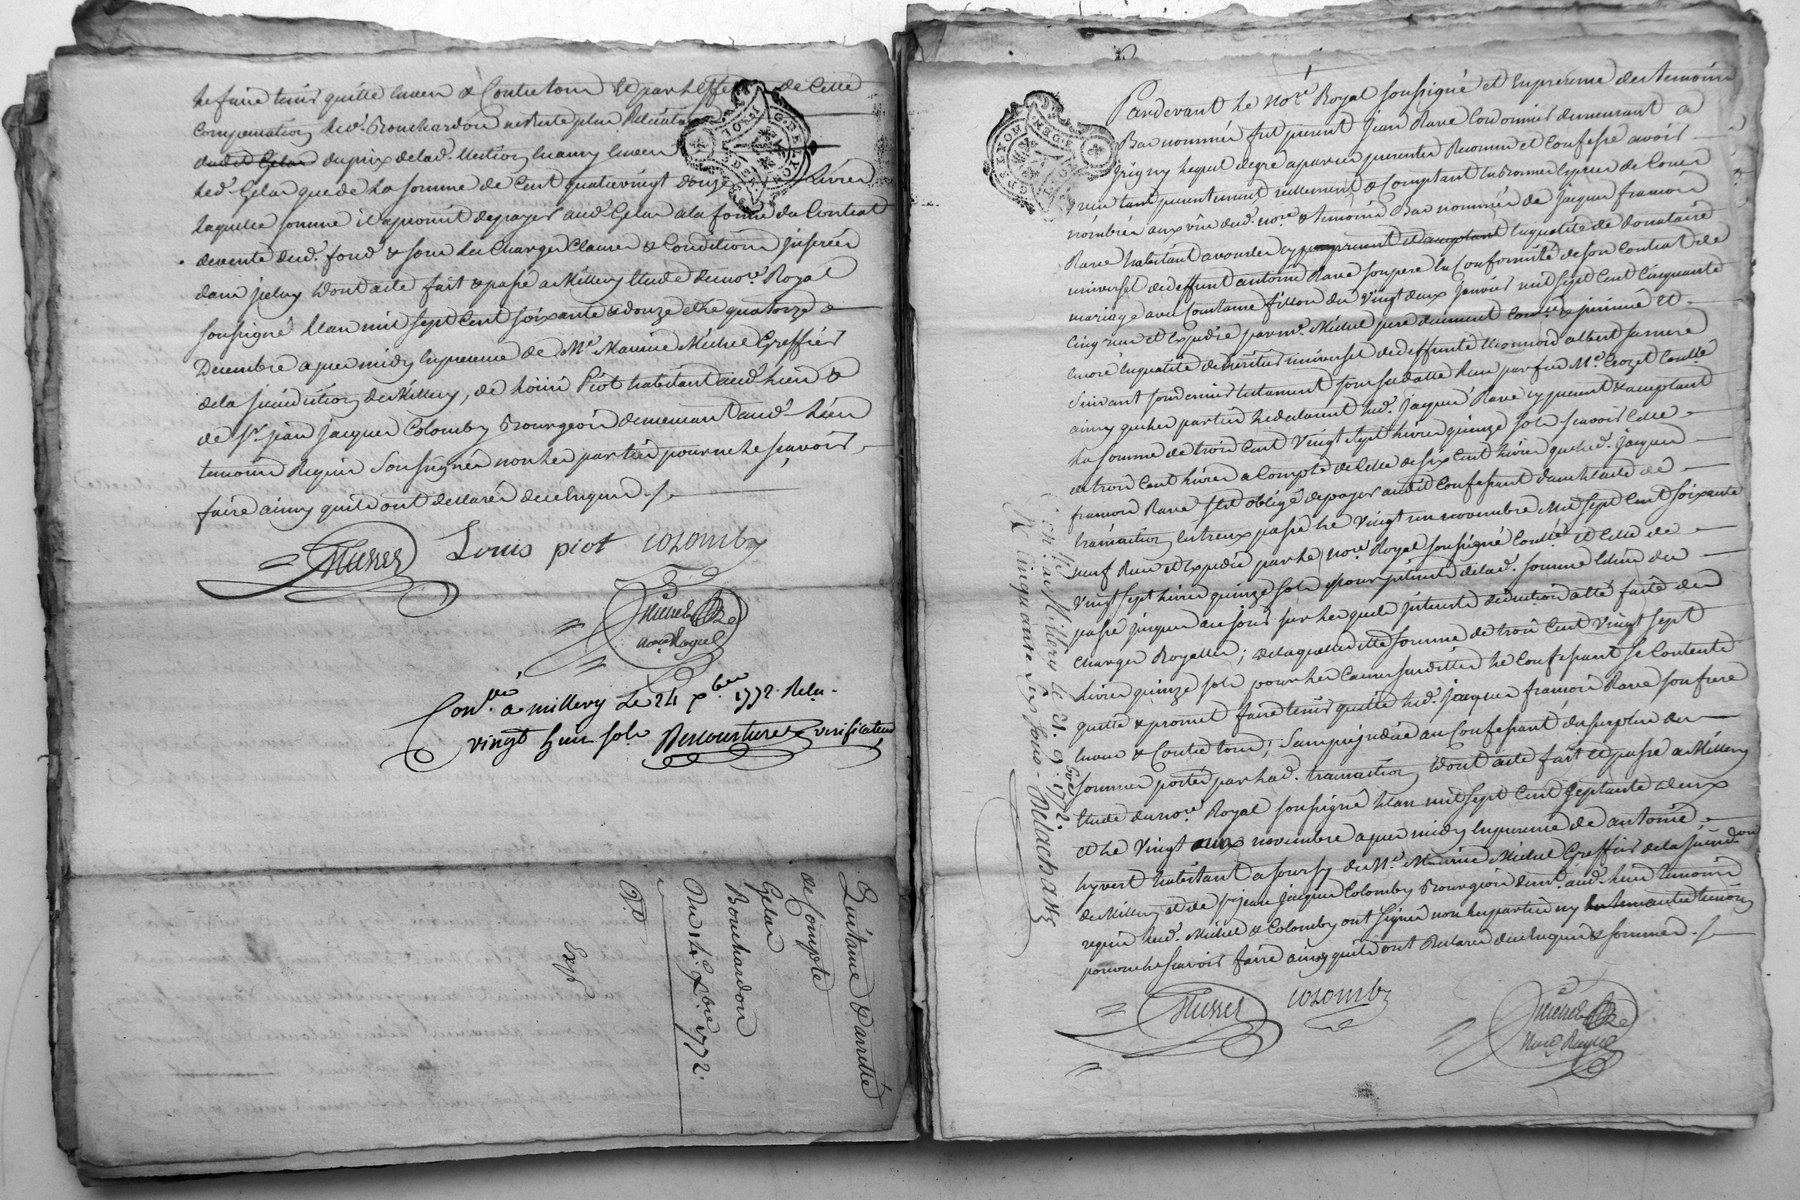 de faire tenir quitte envers & Contre tous Et par L'effet de Cette
Compensation led. Bouchardon ne Reste plus Débiteur
dudit Gelas du prix de lad. Section envers
led. Gelas que de La Somme de Cent quatrevingt douze Livres
laquelle somme il a promit de payer aud. Gelas a la forme du Contrat
de vente dud. fond & sous les Charges Clauses & Conditions jnserées
dans jceluy Dont acte fait & passé a Millery Etude du no.re Royal
soussigné L'an mil sept Cent soixante & douze & le quatorze
Decembre apres midy En presence de M.e Maurice Michel Greffier
de la jurisdiction de Millery, de Loüis Piot habitant aud. Lieu &
de S.r jean jacques Colomby Bourgeois demeurant aud. Lieu
temoins Requis Soussignés non les parties pour ne le sçavoir
faire ainsy qu'ils ont declaré de ce Enquis ./.
Louis piot Colomby
no.re Royal
Con.lé a millery Le 24 x.bre 1772. Reçu
vingt huit sols verificateur
Quitance & arretté
de Compte
Gelas
Bouchardon
Du 14.e Xbre 1772.
Exp.é
1
Pardevant Le No.re Royal soussigné et En presence des temoins
Bas nommés fut present Jean Rave Cordonnier demeurant a
Grigny Lequel de gré a par ces presentes Reconnu et Confessé avoir
Reçu tant presentement reellement & Comptant En Bonnes Especes de Cours
nombrées aux vûs dud. no.re & temoins Bas nommés de jacques françois
Rave habitant a vourles cy present et acceptant En qualité de donataire
universel de deffunt antoine Rave son pere En Conformité de son Contrat de
mariage avec Constance fillon du vingt deux janvier mil sept Cent Cinquante
Cinq reçu et Expedié par m.e Michel pere duement Contrôlé & jnsinué Et
encore En qualité d'heritier universel de deffunte albert sa mere
Suivant son dernier testament sous sa datte Reçu par feu M.e Crozet Contrôlé
ainsy que les parties le declarent led. Jacques Rave cy present & acceptant
La somme de trois Cent vingt sept Livres quinze sols sçavoir Celle
de trois Cent Livres a Compte de Celle de six Cent Livres que led. jacques
françois Rave s'est obligé de payer audit Confessant dans l'acte de
transaction Entreux passé le vingt un novembre Mil sept Cent soixante
neuf Reçu et Expedié par le no.re Royal soussigné Contrôlé et Celle de
vingt sept Livres quinze sols pour jnterets de lad. somme Echus du
passé jusques au jour sur lesquels jnterets deduction a été faite des
Charges Royalles; de laquelle ditte somme de trois Cent vingt sept
Livres quinze sols pour les Causes susdittes le Confessant se Contente
quitte & promet faire tenir quitte led. jacques françois Rave son frere
Envers & Contre tous; Sans prejudice au Confessant du surplus des
sommes portées par lad. transaction Dont acte fait et passé a Millery
Etude du no.re Royal soussigné L'an mil sept Cent septante deux
& le vingt deux novembre apres midy En presence de antoine
hyvert habitant a de M.e Maurice Michel Greffier de la jurisd.on
de Millery et de S.r jean jacques Colomby Bourgeois dem.t aud. Lieu temoins
requis led. Michel & Colomby ont signé non les parties ny
pour ne le sçavoir faire ainsy qu'ils ont declaré de ce Enquis & sommés ./.
Colomby
no.re Royal
Con.lé a Millery le 9.bre 1772.
R. Cinquante six sols